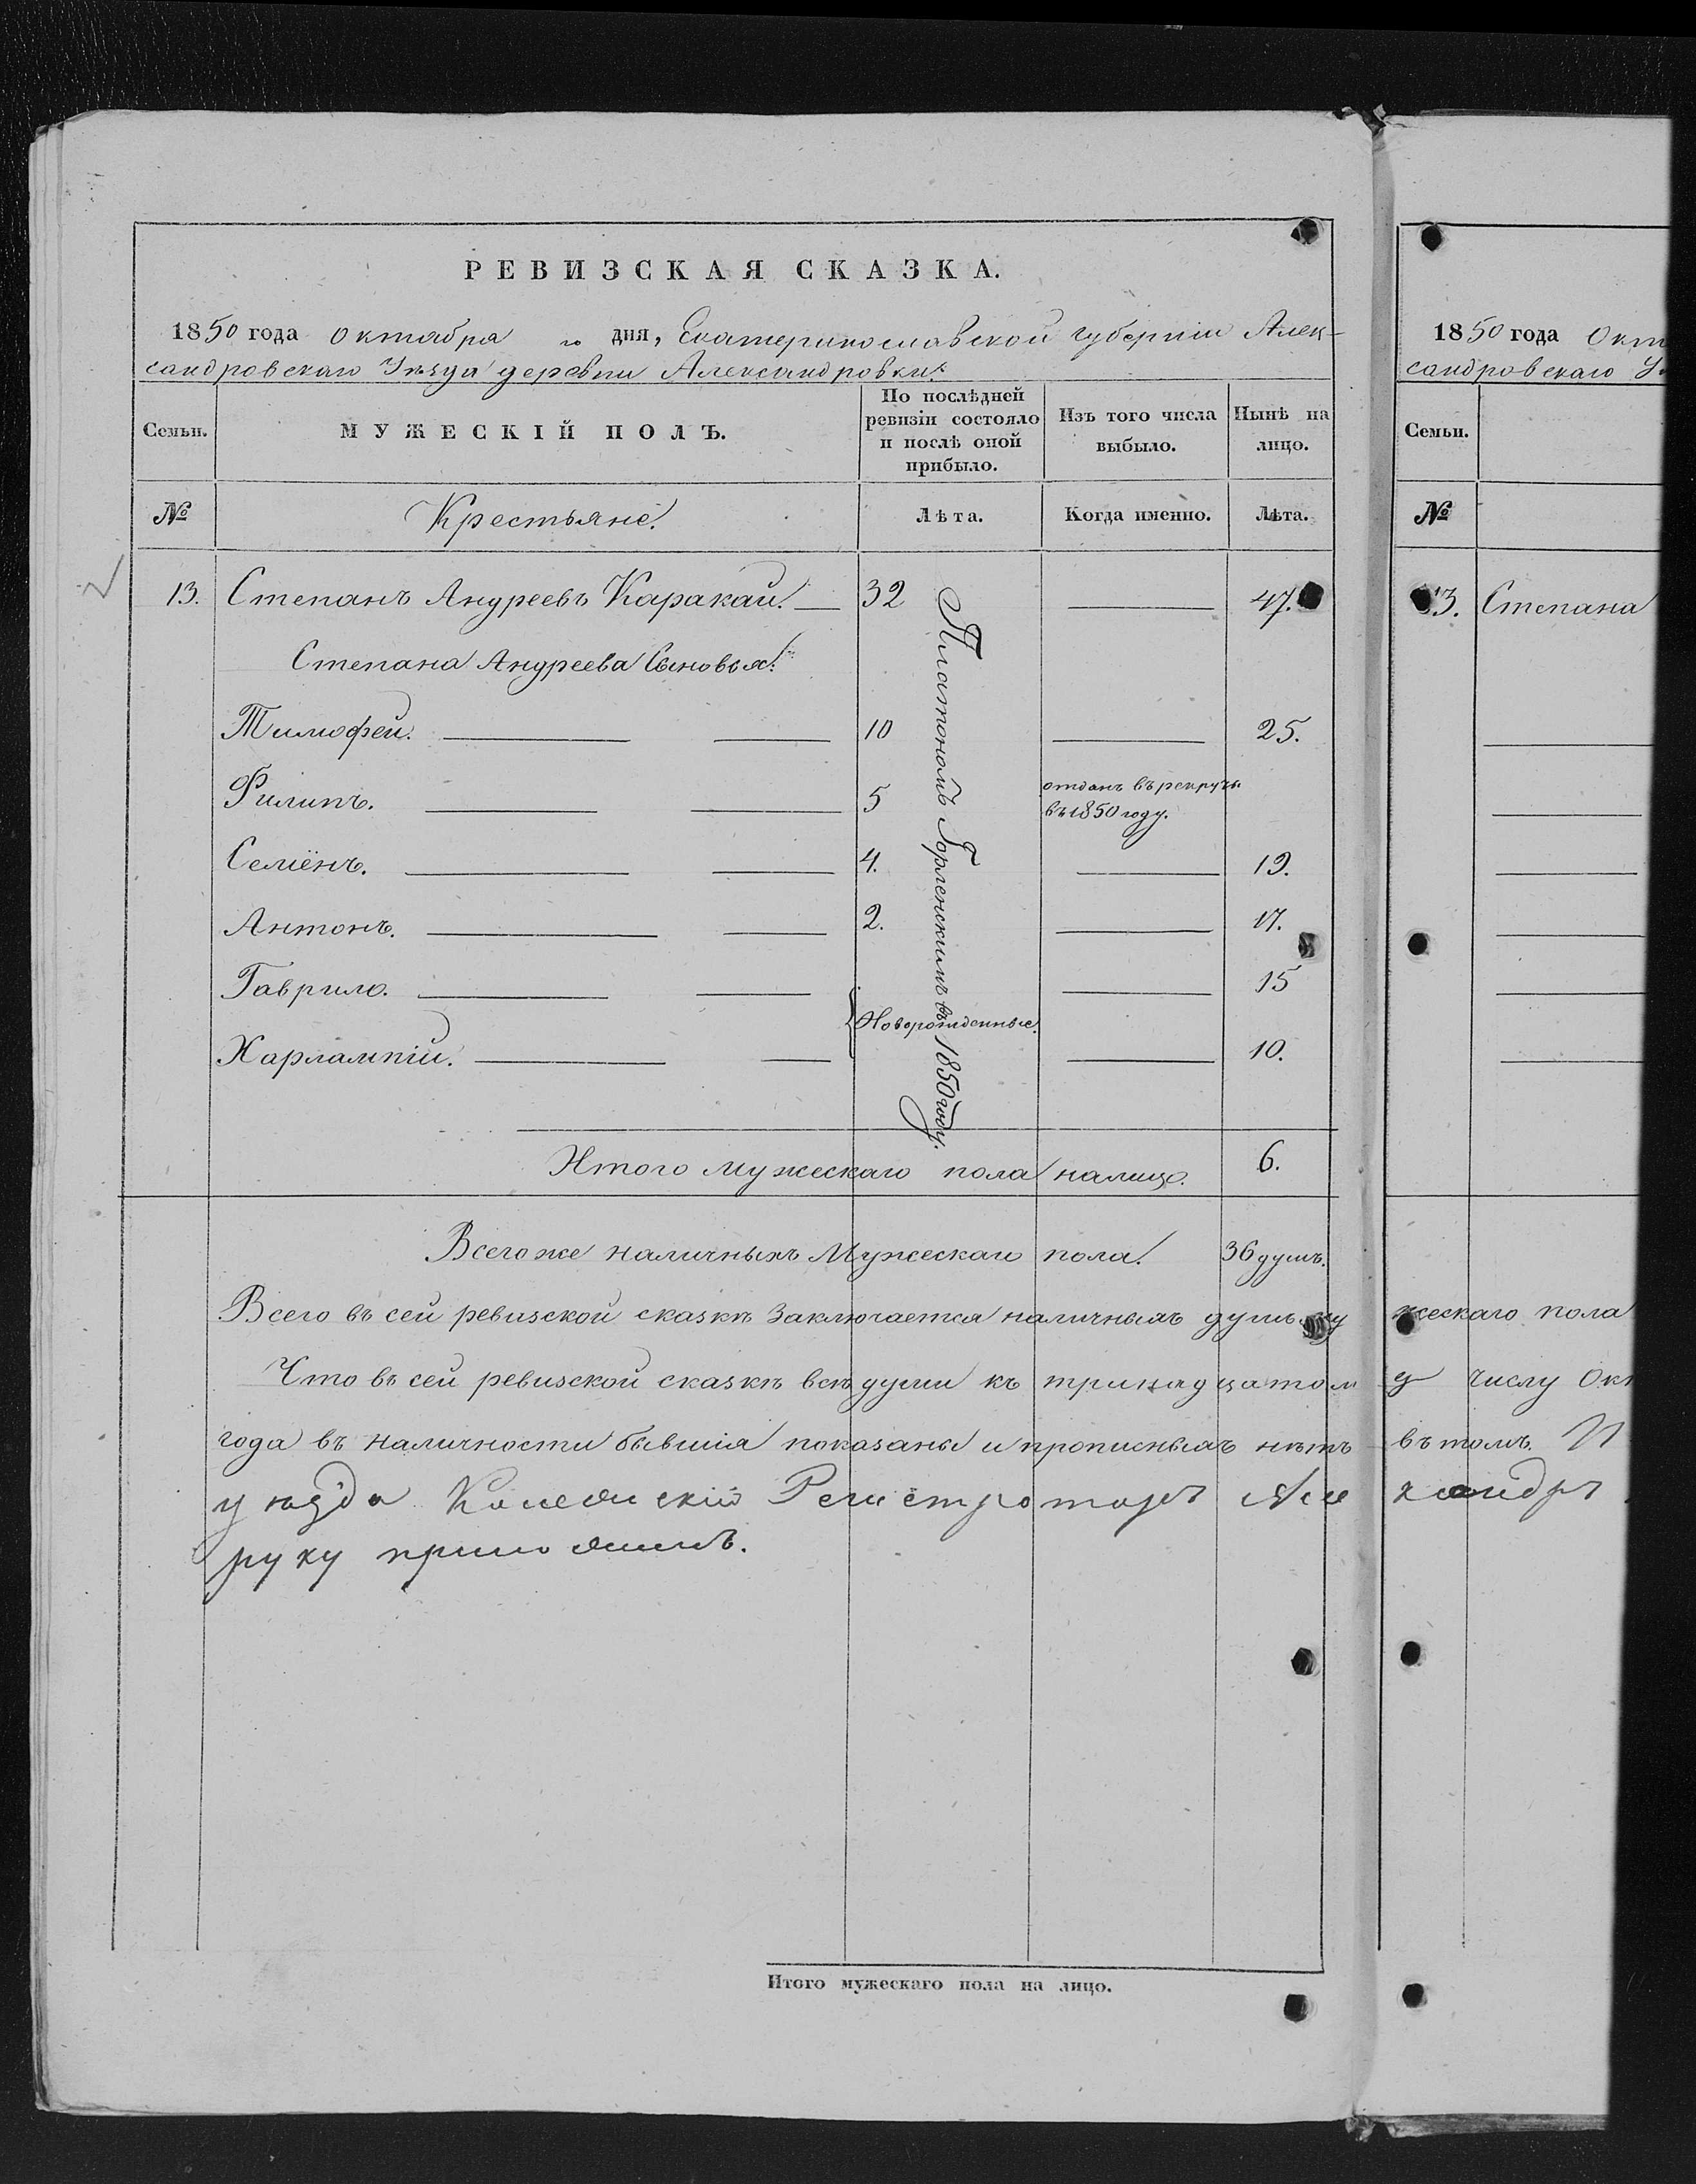 РЕВИЗСКАЯ СКАЗКА.
1850 года Октабра го дня, Екатеринославской губернiи Алек-
сандровскаго Уѣзда деревни Александровки.
Семьи.
МУЖЕСКІЙ ПОЛЪ.
По послѣдней ревизіи состояло и послѣ оной прибыло.
Изъ того числа выбыло.
Нынѣ на лицо.
№ Крестьяне. Лѣта. Когда именно. Лѣта.
13. Степанъ Андреевъ Каракай. 32 47.
Степана Андреева Сыновья:
Тимофей. 10 25.
Филипъ. 5 отданъ въ рекруты
въ 1850 году.
Семёнъ. 4. 19.
Антонъ. 2. 17.
Гаврило. 15
Новорожденные.
Харлампій. 10.
Платономъ Горленскимъ въ 1850 году.
Итого мужескаго пола налицо. 6.
Всего же наличныхъ Мужескаго пола. 36 душъ.
Всего въ сей ревизской сказкѣ Заключается наличныхъ душъ му жескаго пола
Что въ сей ревизской сказкѣ всѣ души къ тринадцатом у числу Ок
года въ наличности бывшія показаны и прописныхъ нѣтъ въ томъ. И
уѣзда Колежскій Регистраторъ Але ксандръ
руку приложилъ.
Итого мужескаго пола на лицо.
1850 года Окт
сандровскаго У
Семьи.
№
13. Степана